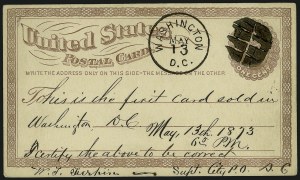 United States
POSTAL CARD
WASHINGTON
MAY
13
D.C.
WRITE THE ADDRESS ONLY ON THIS SIDE-THE MESSAGE ON THE OTHER
This is the first card sold in
Washington D.C. May, 13th 1873
I certify the above to be correct
Supt. City, P.O. D.C